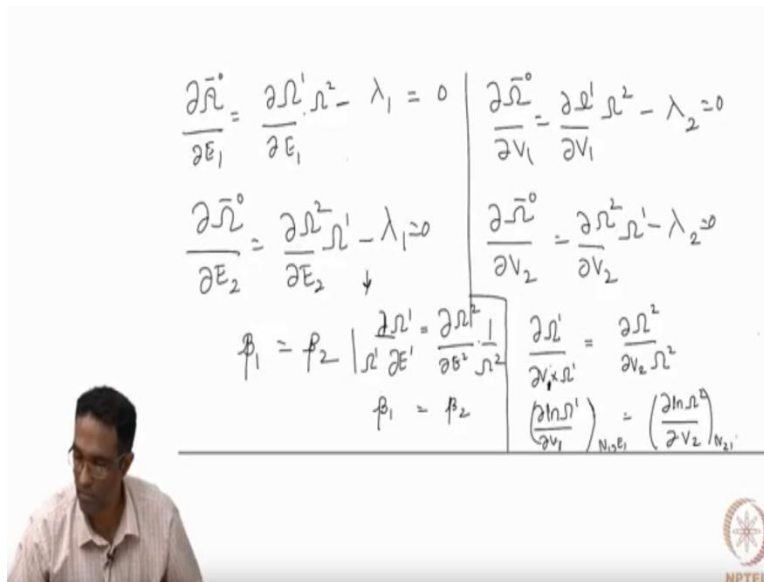 ∂Ω̄⁰/∂E₁ = ∂Ω¹/∂E₁ · Ω² − λ₁ = 0
∂Ω̄⁰/∂E₂ = ∂Ω²/∂E₂ Ω¹ − λ₁ = 0
↓
β₁ = β₂ | ∂Ω¹/Ω¹ ∂E¹ = ∂Ω²/∂E² · 1/Ω²
β₁ = β₂
∂Ω̄⁰/∂V₁ = ∂Ω¹/∂V₁ Ω² − λ₂ = 0
∂Ω̄⁰/∂V₂ = ∂Ω²/∂V₂ Ω¹ − λ₂ = 0
∂Ω¹/∂V₁ × Ω¹ = ∂Ω²/∂V₂ Ω²
(∂lnΩ¹/∂V₁)N₁,E₁ = (∂lnΩ²/∂V₂)N₂,
NPTEL